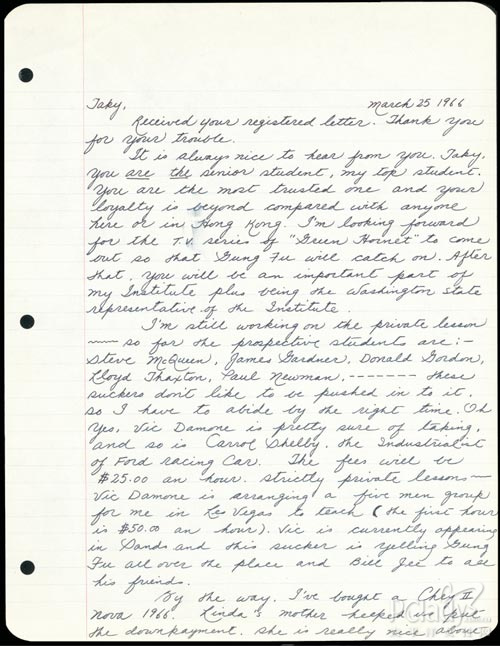 Taky, March 25 1966
Received your registered letter. Thank you
for your trouble.
It is always nice to hear from you. Taky,
you are the senior student, my top student.
You are the most trusted one and your
loyalty is beyond compared with anyone
here or in Hong Kong. I'm looking forward
for the T.V. series of "Green Hornet" to come
out so that Gung Fu will catch on. After
that, you will be an important part of
my Institute plus being the Washington State
representative of the Institute.
I'm still working on the private lesson
—— so far the prospective students are :-
Steve McQueen, James Gardner, Donald Gordon,
Lloyd Thaxton, Paul Newman, ------- these
suckers don't like to be pushed in to it,
so I have to abide by the right time. Oh
yes, Vic Damone is pretty sure of taking,
and so is Carrol Shelby, the Industrialist
of Ford racing Car. The fees will be
$25.00 an hour. strictly private lessons—
Vic Damone is arranging a five men group
for me in Les Vegas to teach (the first hour
is $50.00 an hour). Vic is currently appearing
in Sands and this sucker is yelling Gung
Fu all over the place and Bill Jee to all
his friends.
By the way, I've bought a Chev II
Nova 1966. Linda's mother helped in put
the downpayment. she is really nice about